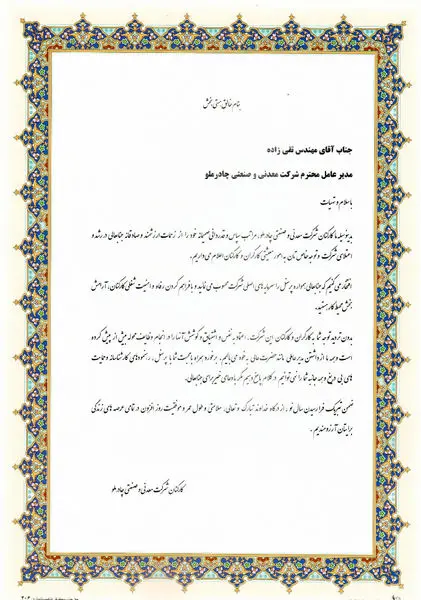 بنام خالق هستی بخش
جناب آقای مهندس تقی زاده
مدیر عامل محترم شرکت معدنی و صنعتی چادرملو
با سلام و تحیات
بدینوسیله ما کارکنان شرکت معدنی و صنعتی چادرملو، مراتب سپاس و قدردانی صمیمانه خود را از زحمات ارزشمند و صادقانه جنابعالی در رشد و
اعتلای شرکت و توجه خاص تان به امور معیشتی کارگران و کارکنان اعلام می داریم.
افتخار می کنیم که جنابعالی همواره پرسنل را سرمایه های اصلی شرکت محسوب می نمائید و با فراهم کردن رفاه و امنیت شغلی کارکنان، آرامش
بخش محیط کار هستید.
بدون تردید توجه شما به کارگران و کارکنان این شرکت، اعتماد به نفس و اشتیاق و کوشش آنها را در انجام وظایف محوله بیش از پیش کرده
است و همه ما از داشتن مدیر عاملی مانند حضرت عالی به خود می بالیم. برخورد همراه با محبت شما با پرسنل، رهنمودهای کارشناسانه و حمایت
های بی دریغ و همه جانبه شما را نمی توانیم در کلام پاسخ دهیم مگر با دعای خیر برای جنابعالی.
ضمن تبریک فرا رسیدن سال نو، از درگاه خداوند تبارک و تعالی، سلامتی و طول عمر و موفقیت روز افزون در تمامی عرصه های زندگی
برایتان آرزومندیم.
کارکنان شرکت معدنی و صنعتی چادرملو